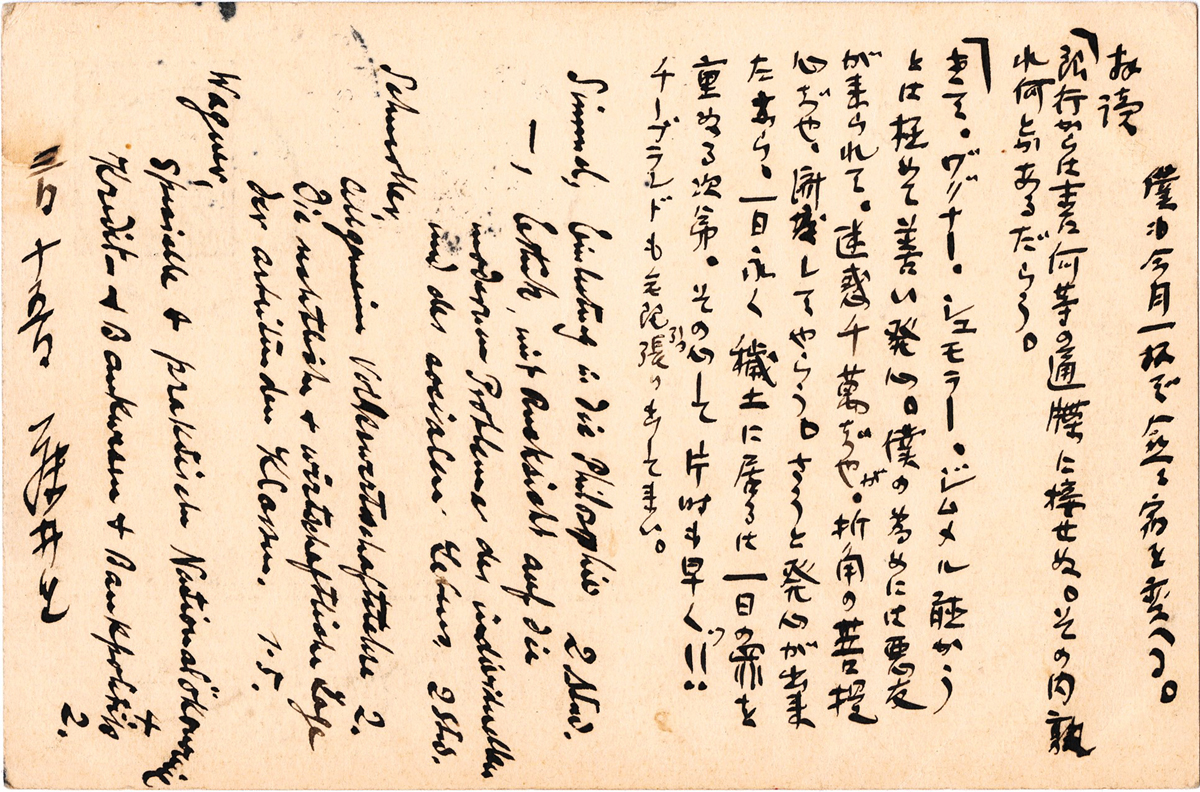 僕も今月一杯で今の宿を変へる。
拝読
「銀行からはまだ何等の通牒に接せぬ。その内孰
れ何とかあるだらう。
「さて。ヴグナー。シュモラー。ジムメル聴かう
とは極めて善い発心。僕の為めには悪友
が来られて。迷惑千萬ぢやが。折角の菩提
心ぢや。済度してやらう。さうと発心が出来
たなら。一日永く穢土に居るは一日の罪を
重ぬる次第。その心して片時も早くッ!!
チーグラルドも宅限引っ張り出して来い。
Simmel, Einleitung in die Philosophie 2 Stud.
—, Ethik, mit Rücksicht auf die
modernen Probleme des individuellen
und des socialen Lebens 2 Std.
Schmoller
Allgemein Volkswirtschaftslehre 2.
Die rechtliche & wirtschaftliche Lage
der arbeitenden Klassen. 1.5.
Wagner,
Spezielle & praktische Nationalökonomie 4
Kredit- & Bankwesen & Bankpolitik 2.
三日十五日 藤井生